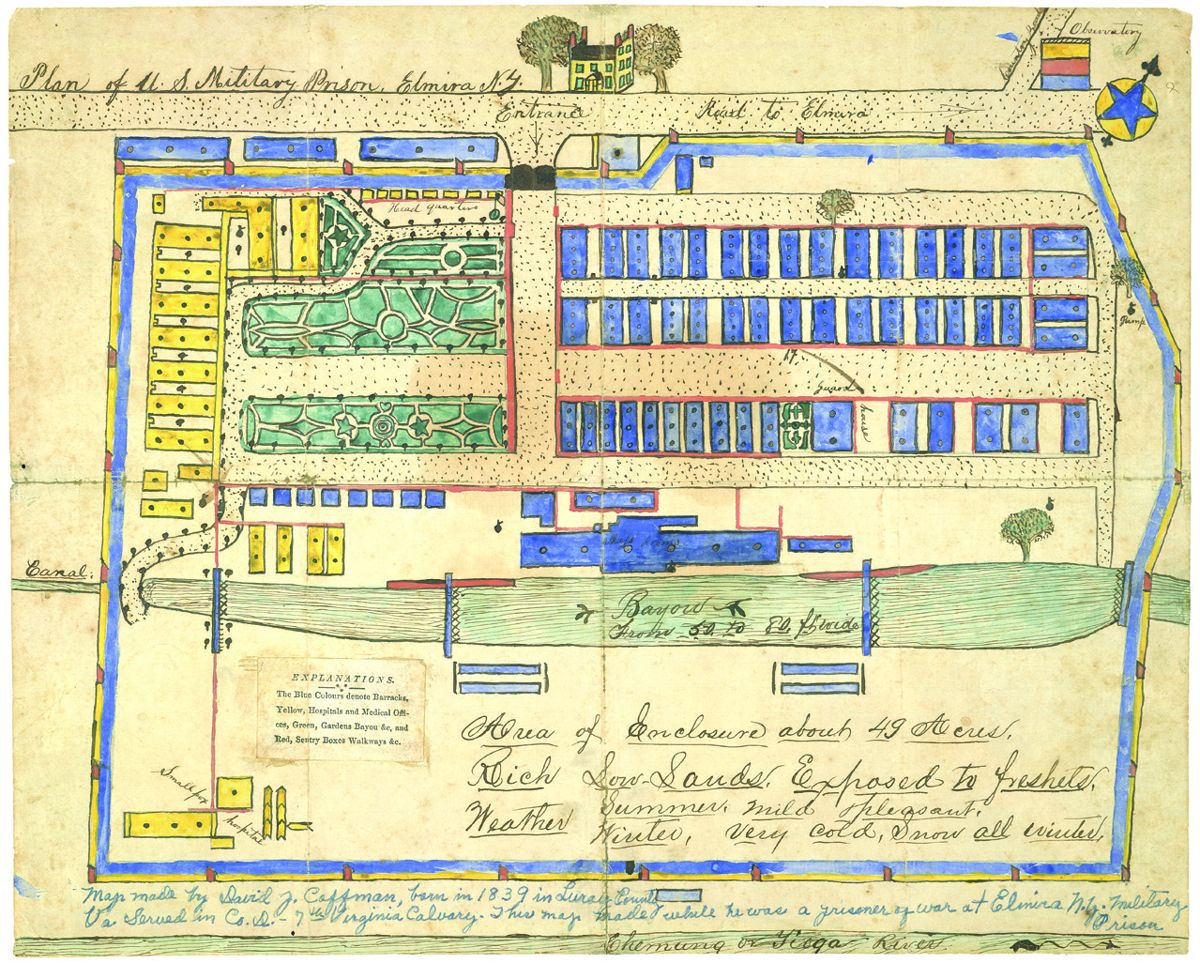 Boundary Road
Observatory
Plan of U. S. Military Prison, Elmira N.Y.
Entrance
Road to Elmira
Head quarters
Pump
17
Guard
house
Canal.
Mess rooms
Bayou
From 50 to 80 ft wide
EXPLANATIONS.
The Blue Colours denote Barracks,
Yellow, Hospitals and Medical Offi-
ces, Green, Gardens Bayou &c, and
Red, Sentry Boxes Walkways &c.
Area of Enclosure about 49 Acres.
Rich Low-Lands. Exposed to freshets.
Weather Summer. mild & pleasant.
Winter, very cold, Snow all winter.
Smallpox
hospital
Map made by David J. Coffman, born in 1839 in Luray County
Va. Served in Co. D. - 7th Virginia Calvary. This map made while he was a prisoner of war at Elmira N.Y. Military
Prison
Chemung or Tioga River